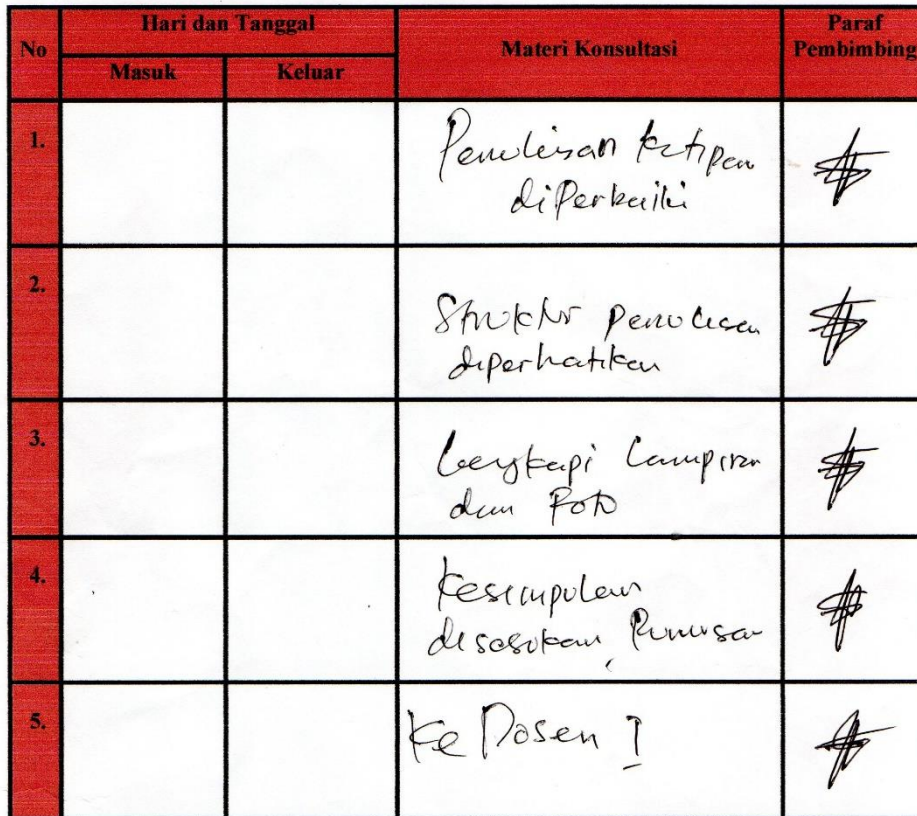 No
Hari dan Tanggal
Masuk
Keluar
Materi Konsultasi
Paraf
Pembimbing
1.
Penulisan kutipan
diperbaiki
2.
Struktur penulisan
diperhatikan
3.
Lengkapi Lampiran
dan Foto
4.
Kesimpulan
disesuikan, Rumusan
5.
Ke Dosen I